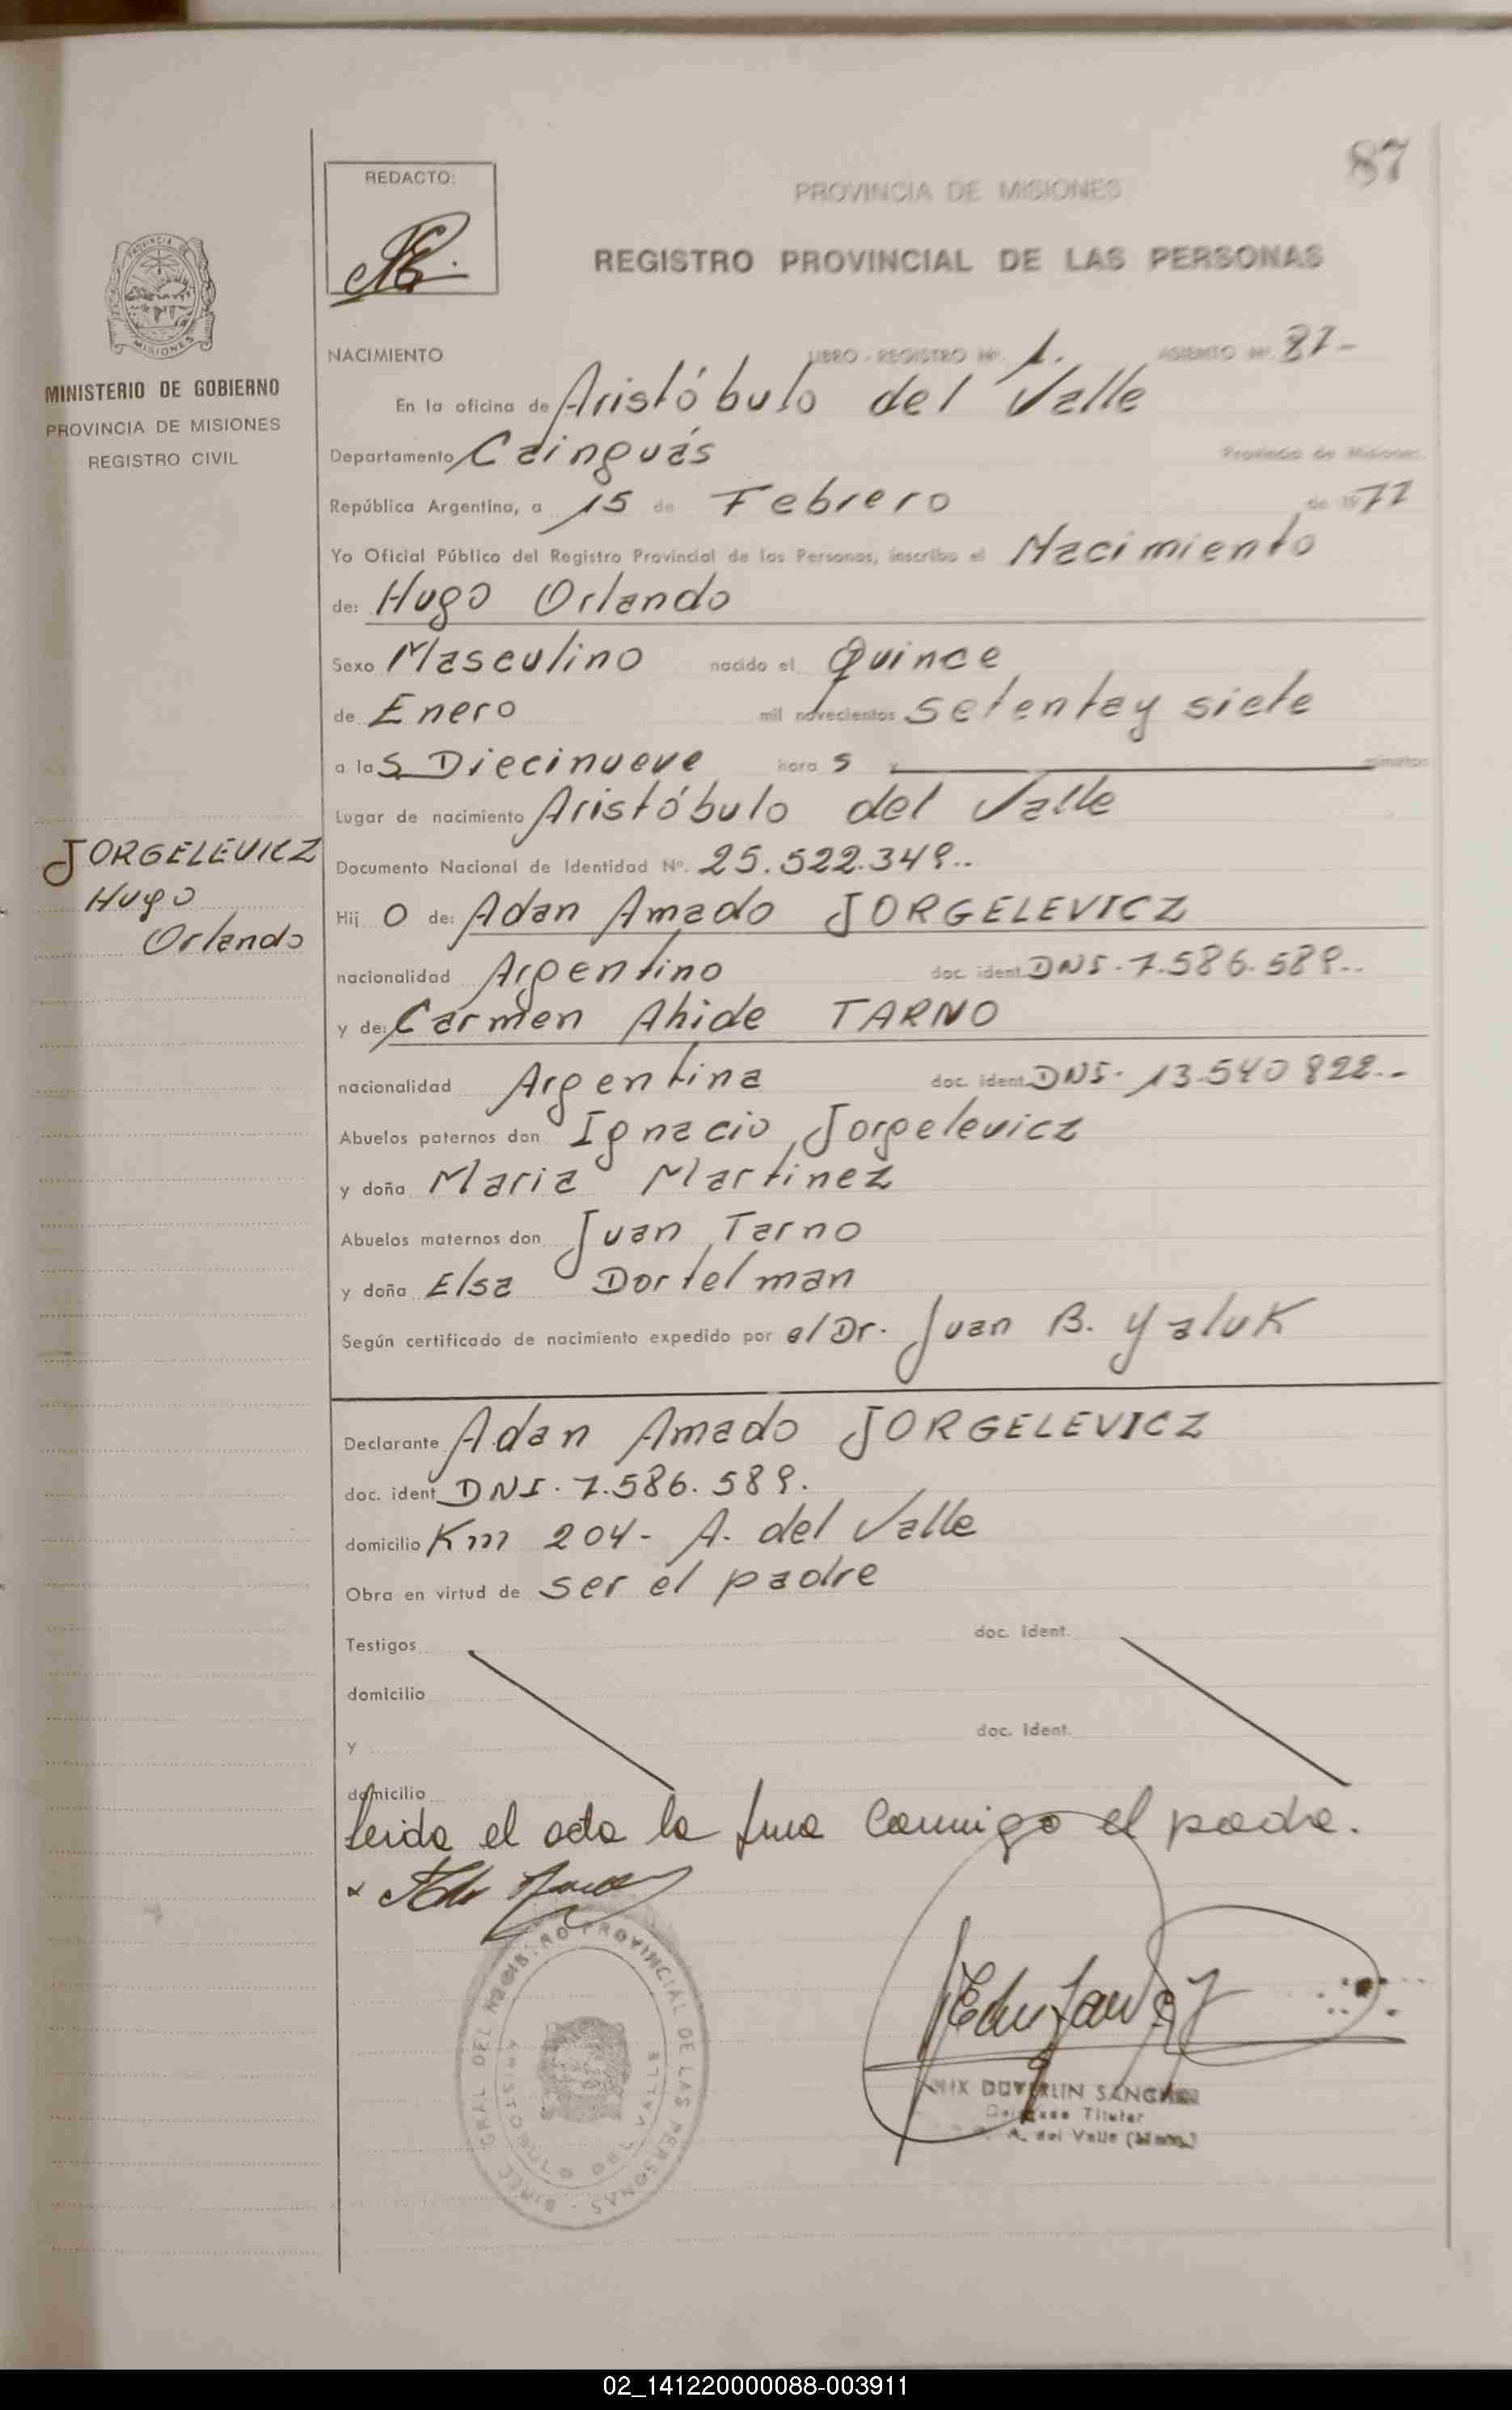 87
REDACTO:
PROVINCIA DE MISIONES
REGISTRO PROVINCIAL DE LAS PERSONAS
PROVINCIA DE
MISIONES
MINISTERIO DE GOBIERNO
PROVINCIA DE MISIONES
REGISTRO CIVIL
NACIMIENTO LIBRO - REGISTRO Nº. 1. ASIENTO Nº. 87-
En la oficina de Aristóbulo del Valle
Departamento Cainguás Provincia de Misiones.
República Argentina, a 15 de Febrero de 1977
Yo Oficial Público del Registro Provincial de las Personas, inscribo el Nacimiento
de: Hugo Orlando
Sexo Masculino nacido el Quince
de Enero mil novecientos setentay siete
a las Diecinueve horas y minutos
Lugar de nacimiento Aristóbulo del Valle
JORGELEVICZ
Hugo
Orlando
Documento Nacional de Identidad Nº. 25.522.349..
Hijo de: Adan Amado JORGELEVICZ
nacionalidad Argentino doc. ident. DNI. 7.586.589..
y de: Carmen Ahide TARNO
nacionalidad Argentina doc. ident. DNI. 13.540 822.-
Abuelos paternos don Ignacio Jorgelevicz
y doña Maria Martinez
Abuelos maternos don Juan Tarno
y doña Elsa Dortelman
Según certificado de nacimiento expedido por el Dr. Juan B. Yaluk
Declarante Adan Amado JORGELEVICZ
doc. ident. DNI. 7.586.589.
domicilio Km 204- A. del Valle
Obra en virtud de ser el padre
Testigos doc. ident.
domicilio
y doc. ident.
domicilio
leida el acta la firma conmigo el padre.
DIREC. GRAL. DEL REGISTRO PROVINCIAL DE LAS PERSONAS
ARISTOBULO DEL VALLE
SANCHEZ
Titular
A. del Valle (Mnes.)
02_141220000088-003911